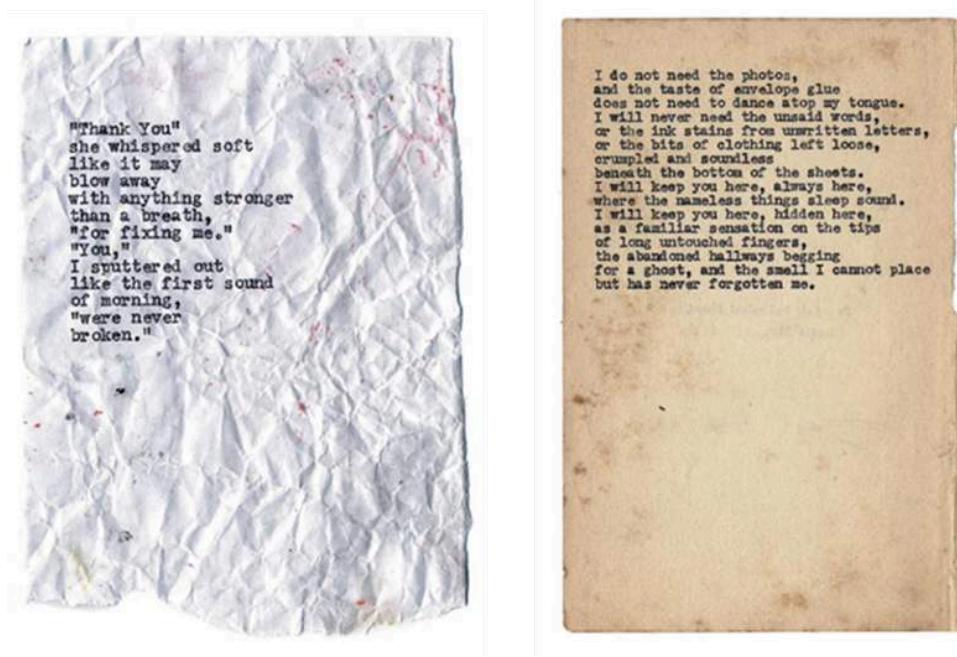 "Thank You"
she whispered soft
like it may
blow away
with anything stronger
than a breath,
"for fixing me."
"You,"
I sputtered out
like the first sound
of morning,
"were never
broken."
I do not need the photos,
and the taste of envelope glue
does not need to dance atop my tongue.
I will never need the unsaid words,
or the ink stains from unwritten letters,
or the bits of clothing left loose,
crumpled and soundless
beneath the bottom of the sheets.
I will keep you here, always here,
where the nameless things sleep sound.
I will keep you here, hidden here,
as a familiar sensation on the tips
of long untouched fingers,
the abandoned hallways begging
for a ghost, and the smell I cannot place
but has never forgotten me.